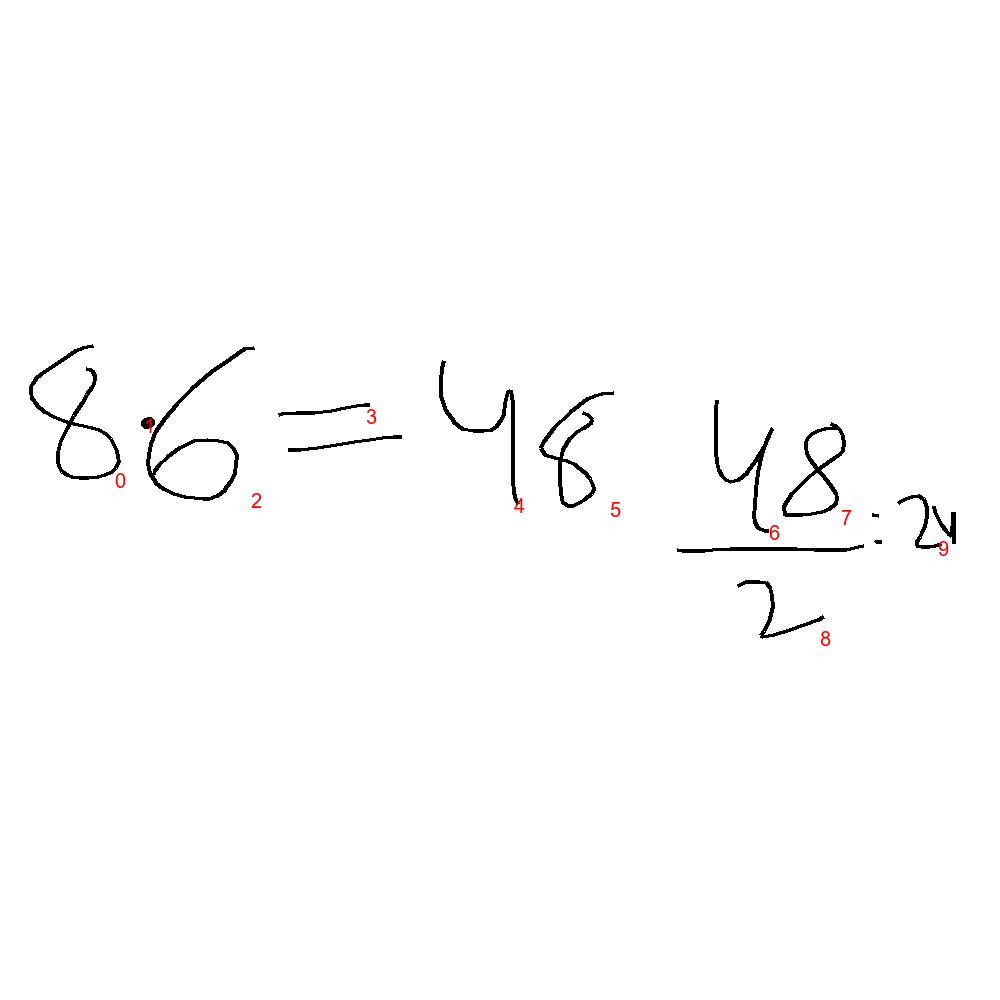 8·6=48
48/2=24
0 1 2 3 4 5 6 7 8 9